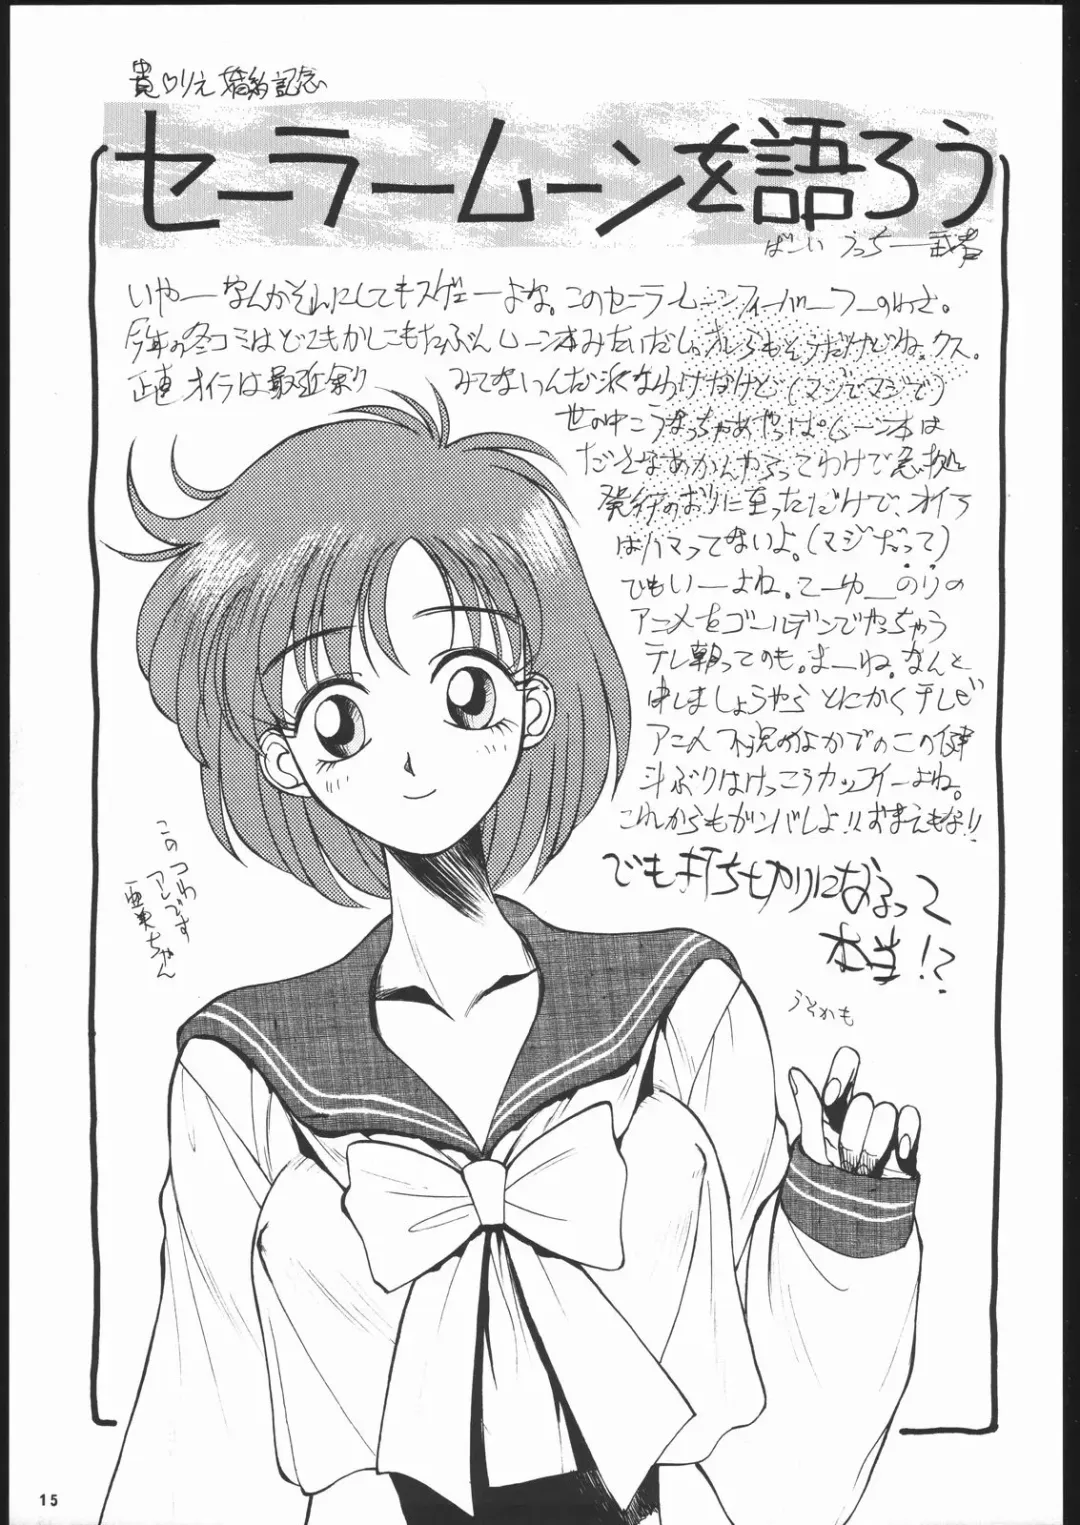 貴♡りえ 婚約記念
セーラームーンを語ろう
ばーい うっちー武者
いやーなんかそんにしてもスゲェーよな。このセーラームーンフィーバーフーのわさ。
今年の冬コミはどこもかしこもたぶんムーン本みたいだしっオレらもそうだけどね。クス。
正直オイラは最近余り みてないんだ派なわけだけど(マジでマジで)
世の中こうなっちゃあやっぱムーン本は
ださなあかんやろってわけで急拠
発行のおりに至っただけで、オイラ
はハマってないよ。(マジだって)
でもいーよね。こーゆーのりの
アニメをゴールデンでやっちゃう
テレ朝ってのも。まーね。なんと
申しましょうやら とにかくテレビ
アニメ不況のなかでのこの健
斗ぶりはけっこうカッコイーよね。
これからもガンバレよ!!おまえもな!!
でも打ち切りになるって
本当!?
うそかも
このコわ
アレです
亜美ちゃん
15